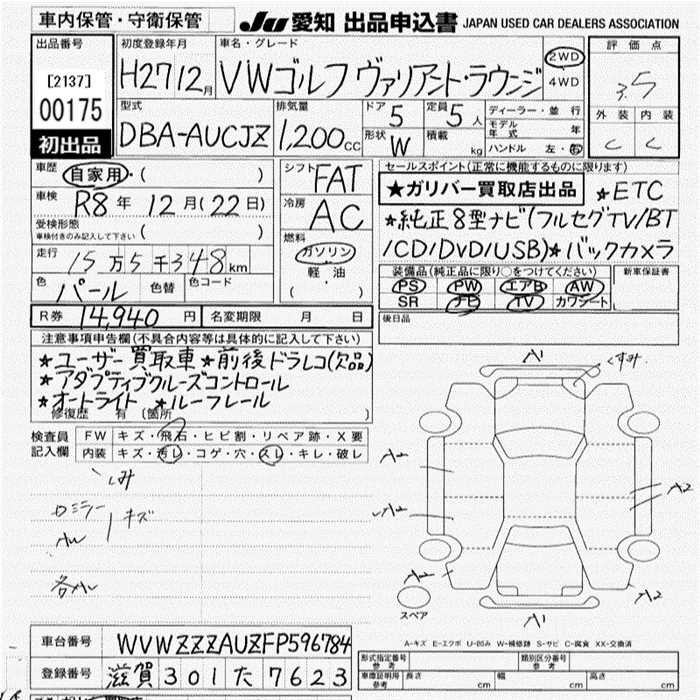 車内保管・守衛保管
JU 愛知 出品申込書 JAPAN USED CAR DEALERS ASSOCIATION
出品番号
[2137]
00175
初出品
初度登録年月
H27 12月
車名・グレード
VWゴルフ ヴァリアント・ラウンジ
2WD
4WD
評価点
3.5
外装 内装
C C
型式
DBA-AUCJZ
排気量
1,200cc
ドア 5
定員 5人
形状 W
積載 kg
ディーラー・並行
モデル年式 年
ハンドル 左・右
車歴
自家用・( )
車検
R8年 12月(22日)
受検形態
車検付きのみ記入して下さい ( )
走行
15万5千348km
色
パール
色替
色コード
シフト
FAT
冷房
AC
燃料
ガソリン
軽・油
( ・ )
セールスポイント(正常に機能するものに限ります)
★ガリバー買取店出品 ★ETC
★純正8型ナビ(フルセグTV/BT
/CD/DVD/USB)★バックカメラ
装備品(純正品に限り○をつけてください)
PS PW エアB AW
SR ナビ TV カワシート
新車保証書
後日品
R券 14,940円
名変期限 月 日
注意事項申告欄(不具合内容等は具体的に記入して下さい)
★ユーザー買取車★前後ドラレコ(欠品)
★アダプティブクルーズコントロール
★オートライト ★ルーフレール
修復歴 有 (箇所 )
検査員
記入欄
FW キズ・飛石・ヒビ割・リペア跡・X要
内装 キズ・汚レ・コゲ・穴・スレ・キレ・破レ
しみ
キズ
A1
くすみ
A2
A2
A2
A2
A2
A1
スペア
A-キズ E-エクボ U-凹み W-補修跡 S-サビ C-腐食 XX-交換済
車台番号
WVWZZZAUZFP596784
登録番号
滋賀 301 た 7623
形式指定番号 参考
類別区分番号 参考
車庫証明用 参考
長さ cm 幅 cm 高さ cm